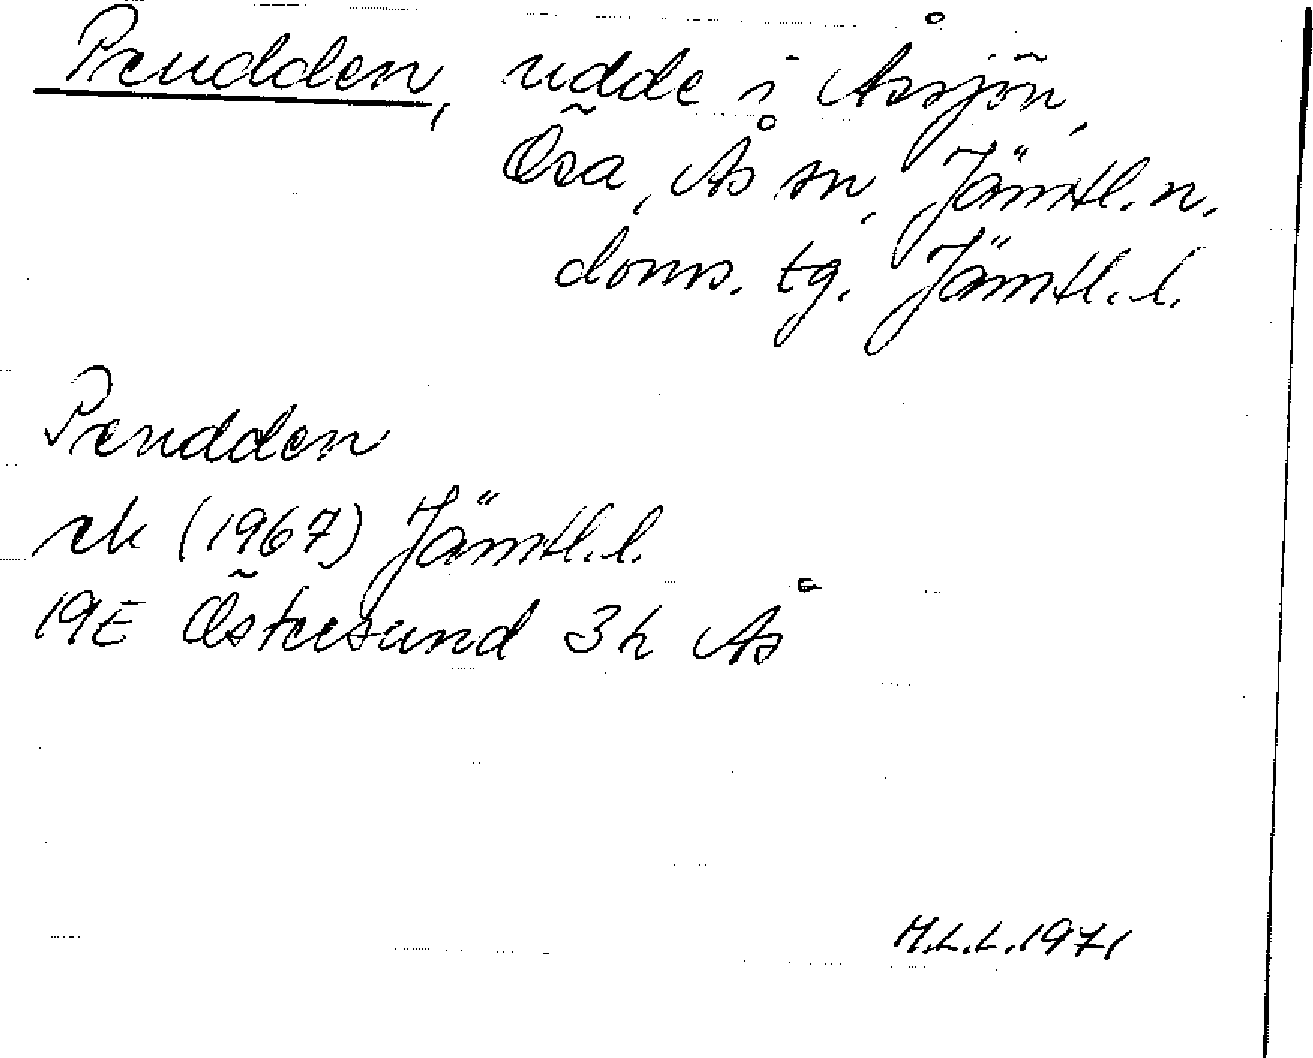 Peudden, udde i Åssjön,
Ösa, Ås sn, Jämtl. n.
doms. tg. Jämtl. l.
Peudden
ek (1967) Jämtl. l.
19E Östersund 3h Ås
M.L.L. 1971